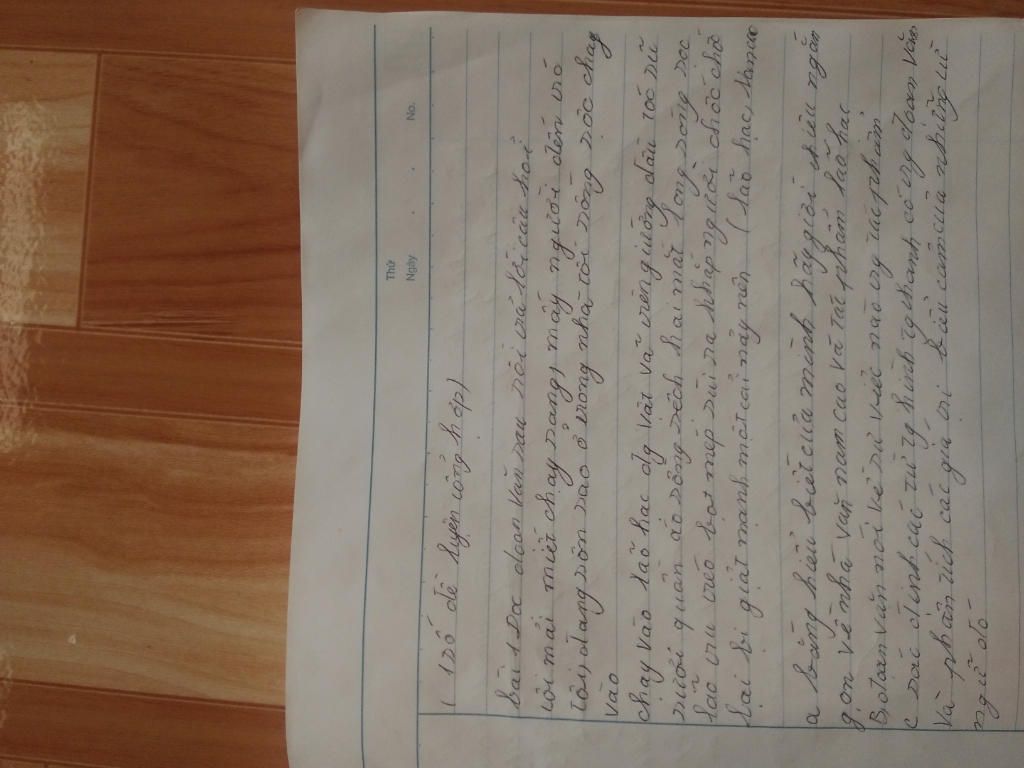 Thứ
Ngày . . No.
( 1 số đề luyện tổng hợp)
bài 1 Đọc đoan văn sau rồi trả lời câu hỏi
tôi mải miết chạy sang, mấy người dến trc
tôi, đang xôn xao ở trong nhà tôi xồng xộc chạy
vào
chạy vào lão hac dg vật vã trên giường đầu tóc rũ
rượi quần áo xộc xệch hai mắt long sòng sọc
lão tru tréo bọt mép sùi ra khắp người chốc chốc
lại bị giật mạnh một cái nảy nên (lão hạc, Nam cao
a bằng hiểu biết của mình hãy giới thiệu ngắn
gọn về nhà văn nam cao và tác phẩm lão hac
B, đoan văn nói về sự việc nào trg tác phẩm
c xác đinh các từ tg hình tg thanh có trg đoan văn
Và phân tích các giá trị biểu cảm của những từ
ngữ đó